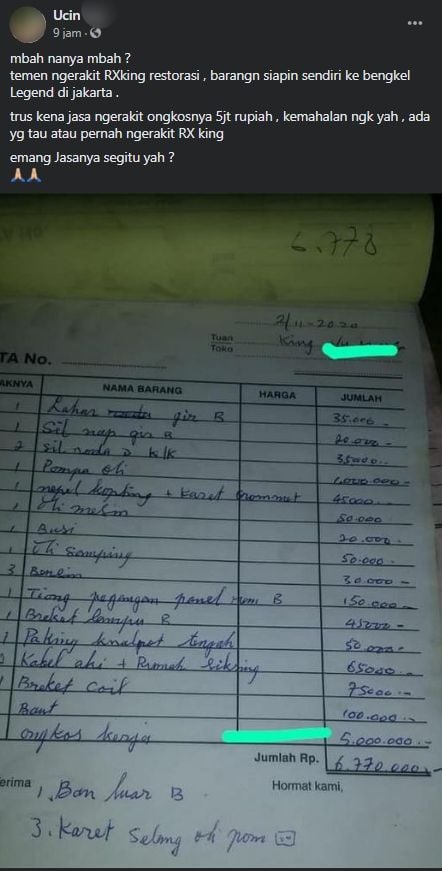 Ucin
9 jam
mbah nanya mbah ?
temen ngerakit RXking restorasi , barangn siapin sendiri ke bengkel
Legend di jakarta .
trus kena jasa ngerakit ongkosnya 5jt rupiah , kemahalan ngk yah , ada
yg tau atau pernah ngerakit RX king
emang Jasanya segitu yah ?
6.773
2/11-2020
Tuan
Toko King
TA No.
AKNYA NAMA BARANG HARGA JUMLAH
1 Lahar gir B 35.000 -
1 Sil nap gir B 20.000 -
2 Sil roda D K/K 35000 -
1 Pompa oli 1.000.000 -
1 nepel kopling + karet grommet 45000 -
1 Oli mesin 50.000
1 Busi 20.000 -
1 Oli samping 50.000 -
3 Bensin 30.000 -
1 Tiong pegangan panel rem B 150.000 -
1 Breket lampu B 45000 -
1 Paking knalpot tengah 50.000 -
Kabel aki + Rumah sikring 65000 -
1 Breket coil 75000 -
Baut 100.000 -
ongkos kerja 5.000.000 -
Jumlah Rp. 6.770.000 -
erima
Hormat kami,
1. Ban luar B
3. Karet Selang oli pom